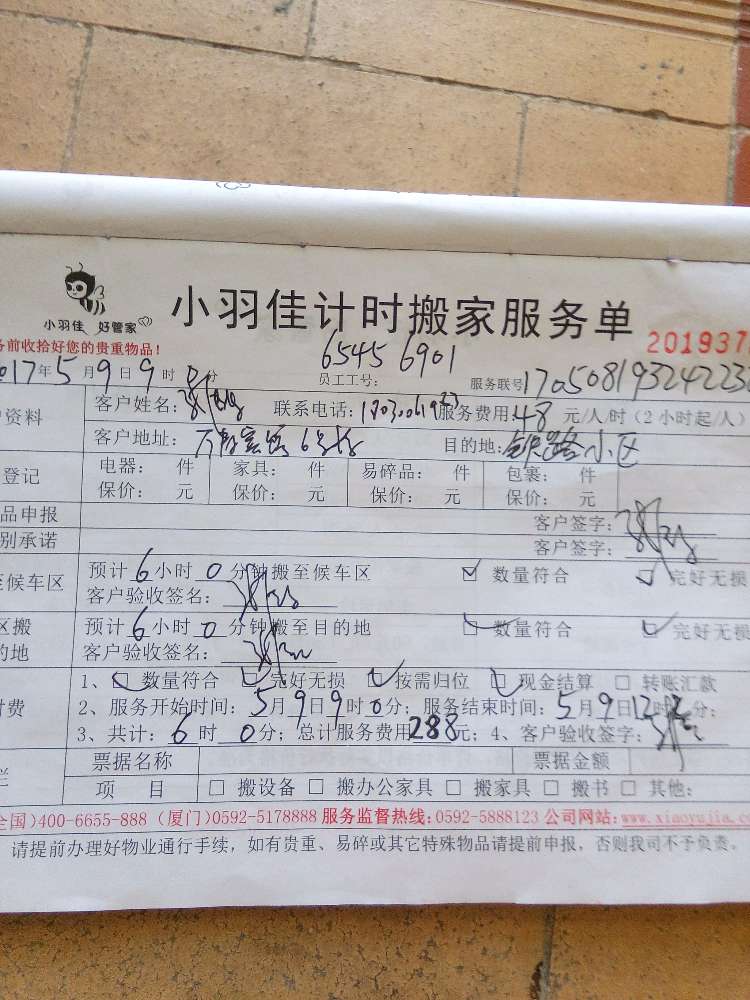 小羽佳 好管家
小羽佳计时搬家服务单
务前收拾好您的贵重物品!
65456901
201937
017年5月9日9时0分
员工工号:
服务联号:
户资料
客户姓名:
联系电话:
服务费用:48元/人/时(2小时起/人)
客户地址:
目的地:铁路小区
登记
电器: 件 家具: 件 易碎品: 件 包裹: 件
保价: 元 保价: 元 保价: 元 保价: 元
品申报
客户签字:
别承诺
客户签字:
至候车区
预计6小时0分钟搬至候车区 数量符合 完好无损
客户验收签名:
区搬
的地
预计6小时0分钟搬至目的地 数量符合 完好无损
客户验收签名:
付费
1、数量符合 完好无损 按需归位 现金结算 转账汇款
2、服务开始时间:5月9日9时0分;服务结束时间:5月9日12时 分;
3、共计:6时0分;总计服务费用288元;4、客户签字:
栏
票据名称 票据金额
项 目 搬设备 搬办公家具 搬家具 搬书 其他:
全国)400-6655-888 (厦门)0592-5178888 服务监督热线:0592-5888123 公司网站:www.xiaoyujia.co
请提前办理好物业通行手续,如有贵重、易碎或其它特殊物品请提前申报,否则我司不予负责。